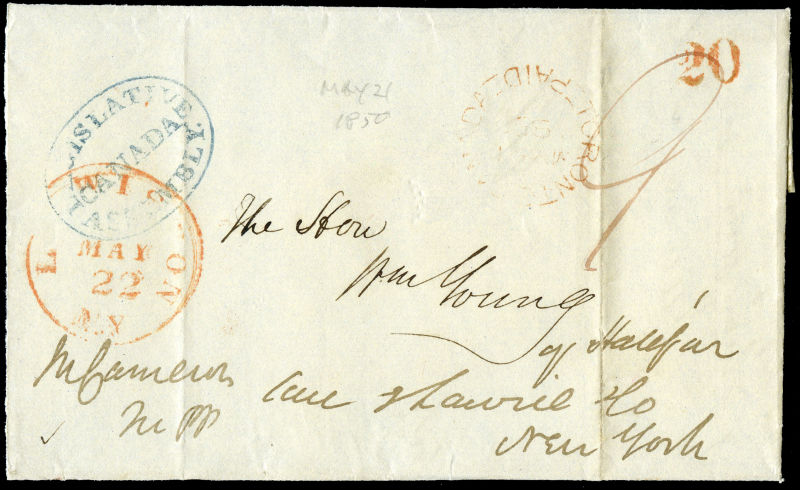 LEGISLATIVE ASSEMBLY
CANADA
LEWISTON
MAY
22
N.Y
MAY 21
1850
TORONTO
PAID
20
9
The Hon
Wm Young
of Halifax
Care
New York
M Cameron
MPP